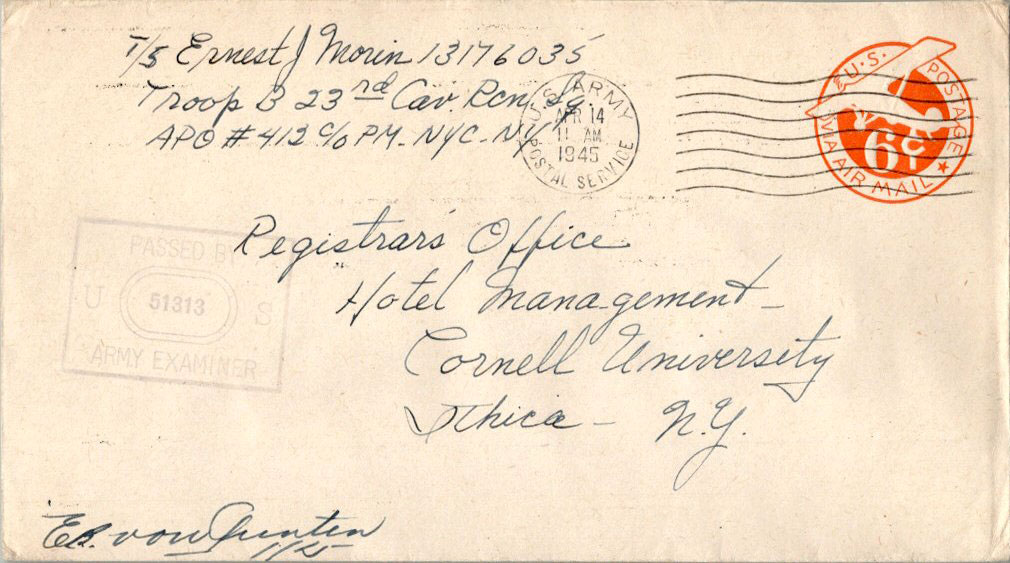 T/5 Ernest J Morin 13176035
Troop B 23rd Cav. Rcn. Sq.
APO # 412 c/o PM. NYC. NY
U.S. ARMY
APR 14
11 AM
1945
POSTAL SERVICE
U.S. POSTAGE
6¢
VIA AIR MAIL
Registrar's Office
Hotel Management -
Cornell University
Ithica - N.Y.
PASSED BY
U 51313 S
ARMY EXAMINER
von Gunten